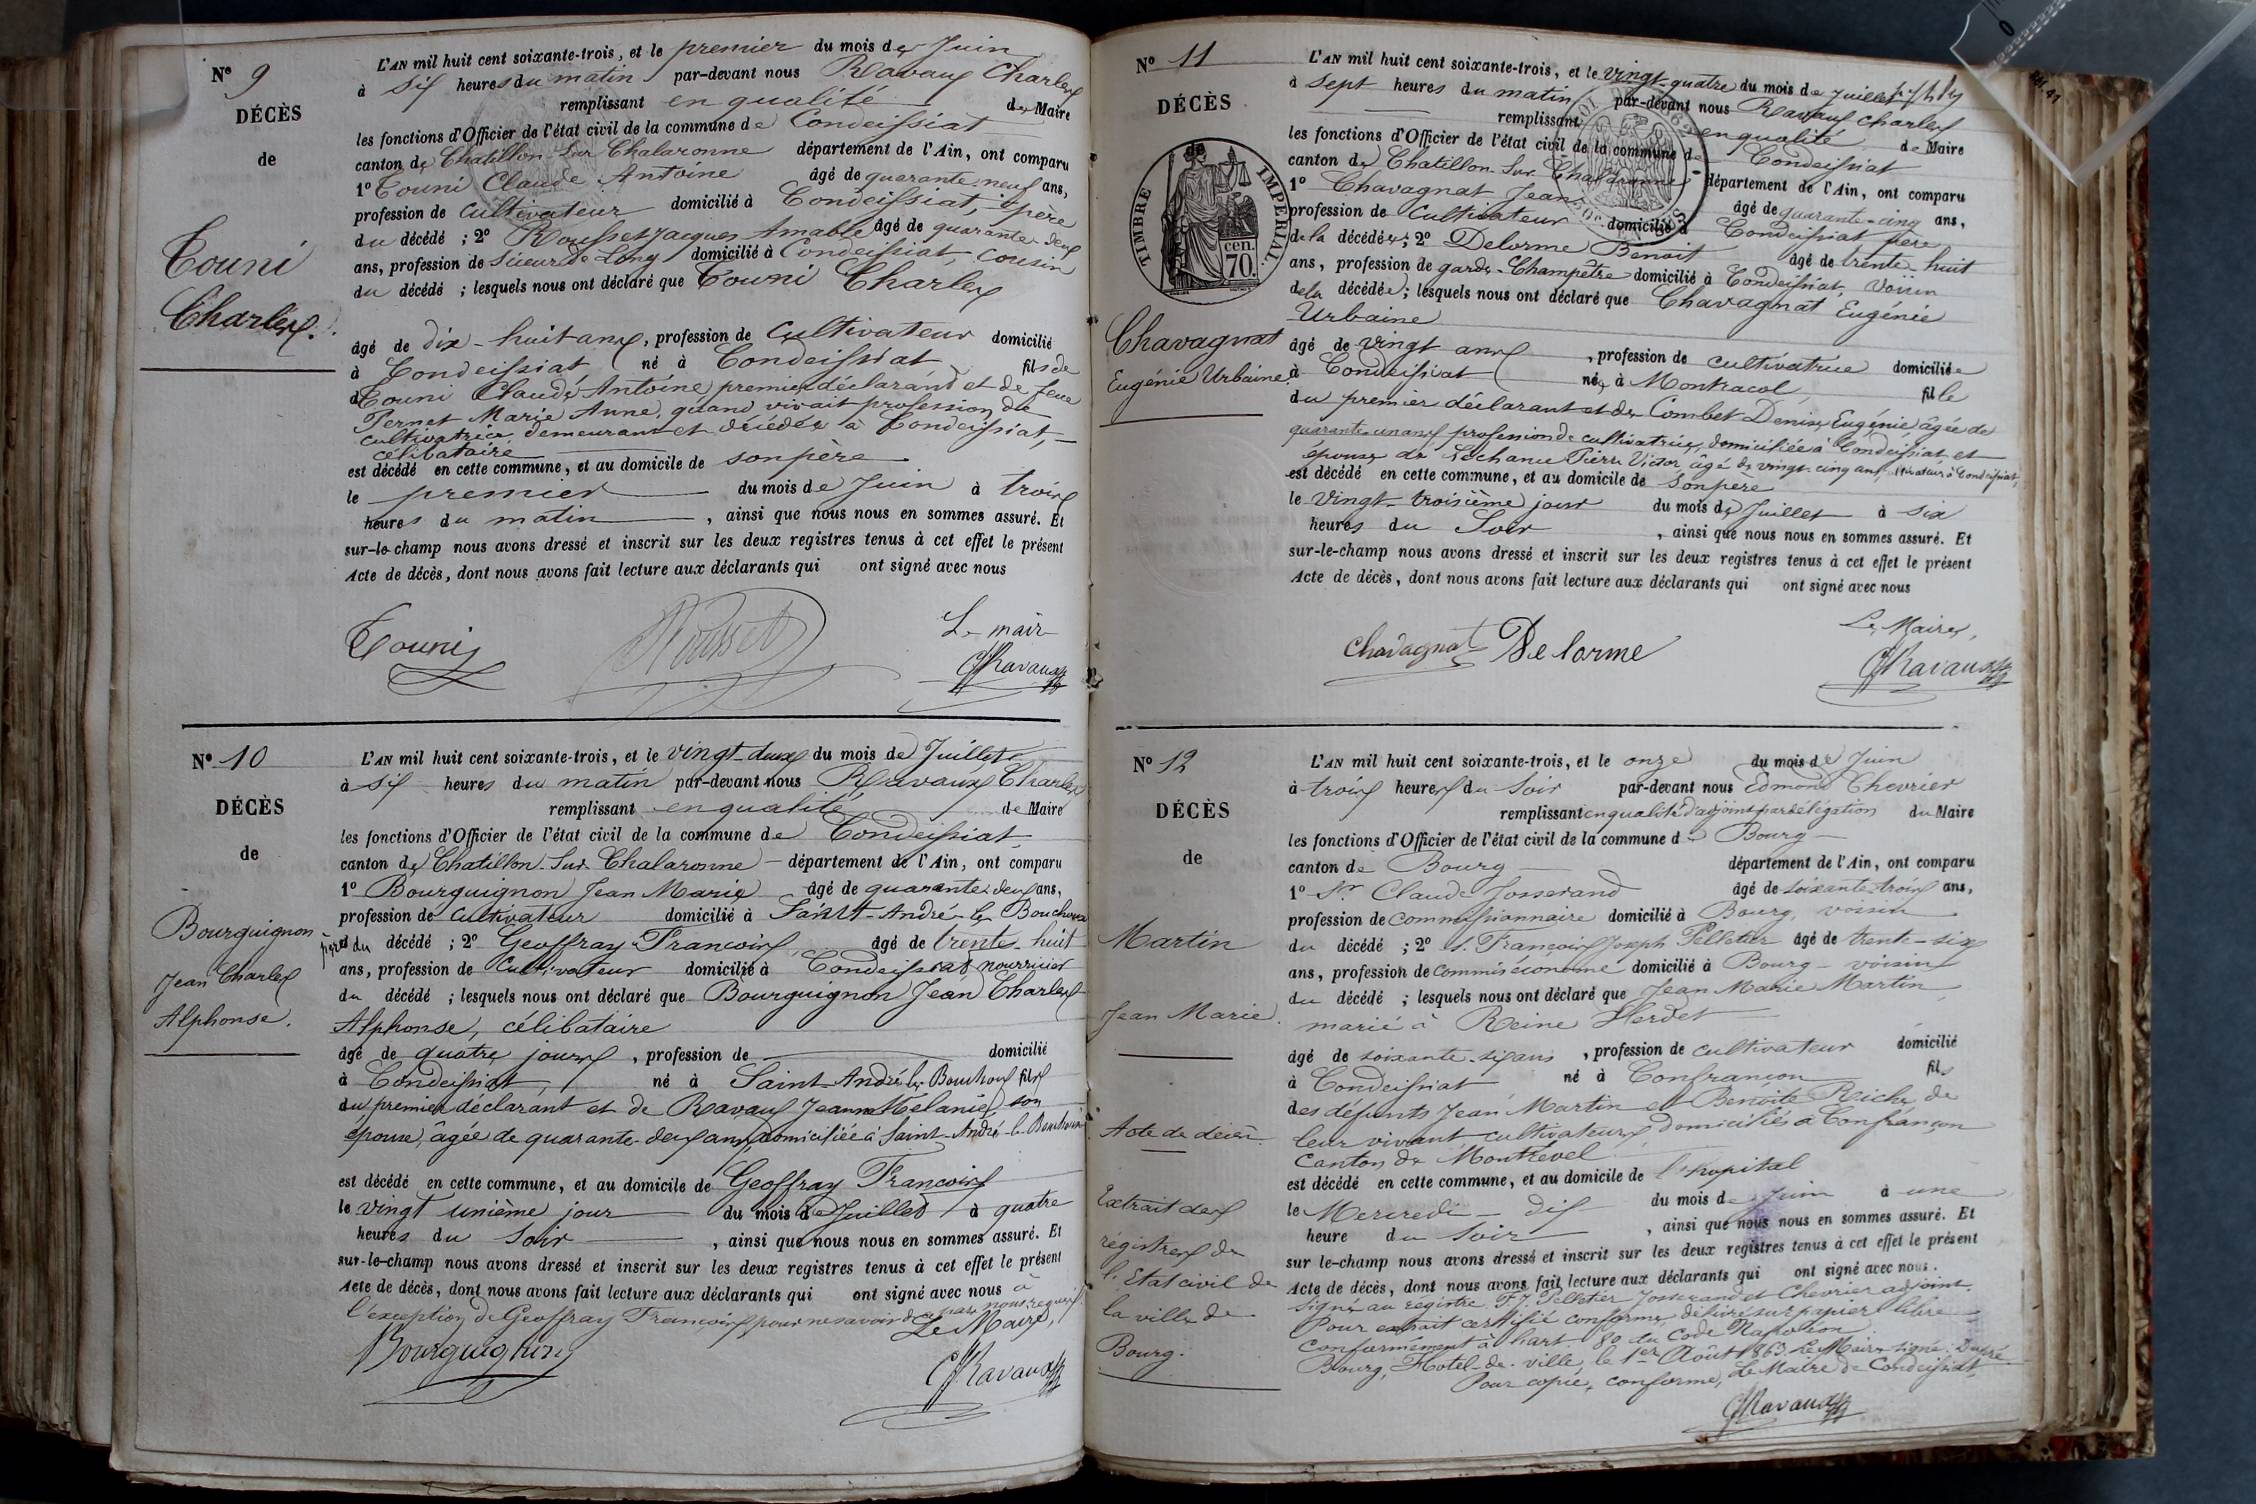 N° 9
DÉCÈS
de
Touni
Charles.
L'AN mil huit cent soixante-trois, et le premier du mois de Juin
à six heures du matin par-devant nous Ravaux Charles
remplissant en qualité de Maire
les fonctions d'Officier de l'état civil de la commune de Condeissiat
canton de Chatillon-sur-Chalaronne département de l'Ain, ont comparu
1° Touni Claude Antoine âgé de quarante-neuf ans,
profession de cultivateur domicilié à Condeissiat, père
du décédé ; 2° Rousset Jacques Amable âgé de quarante deux
ans, profession de Scieur de Long domicilié à Condeissiat, cousin
du décédé ; lesquels nous ont déclaré que Touni Charles
âgé de dix-huit ans, profession de cultivateur domicilié
à Condeissiat né à Condeissiat fils de
Touni Claude Antoine premier déclarant et de feue
Pernet Marie Anne, quand vivait profession de
cultivatrice, demeurant et décédée à Condeissiat,
célibataire
est décédé en cette commune, et au domicile de son père
le premier du mois de Juin à trois
heures du matin, ainsi que nous nous en sommes assuré. Et
sur-le-champ nous avons dressé et inscrit sur les deux registres tenus à cet effet le présent
Acte de décès, dont nous avons fait lecture aux déclarants qui ont signé avec nous
Touni Rousset Le maire
Ravaux
N° 10
DÉCÈS
de
Bourguignon
Jean Charles
Alphonse.
L'AN mil huit cent soixante-trois, et le vingt-deux du mois de Juillet
à six heures du matin par-devant nous Ravaux Charles
remplissant en qualité de Maire
les fonctions d'Officier de l'état civil de la commune de Condeissiat
canton de Chatillon-sur-Chalaronne département de l'Ain, ont comparu
1° Bourguignon Jean Marie âgé de quarante deux ans,
profession de cultivateur domicilié à Saint-André-le-Bouchoux
père du décédé ; 2° Geoffray François âgé de trente-huit
ans, profession de cultivateur domicilié à Condeissiat nourricier
du décédé ; lesquels nous ont déclaré que Bourguignon Jean Charles
Alphonse, célibataire
âgé de quatre jours, profession de domicilié
à Condeissiat, né à Saint-André-le-Bouchoux fils
du premier déclarant et de Ravaux Jeanne Mélanie, son
épouse, âgée de quarante-deux ans, domiciliée à Saint-André-le-Bouchoux
est décédé en cette commune, et au domicile de Geoffray François
le vingt unième jour du mois de Juillet à quatre
heures du soir, ainsi que nous nous en sommes assuré. Et
sur-le-champ nous avons dressé et inscrit sur les deux registres tenus à cet effet le présent
Acte de décès, dont nous avons fait lecture aux déclarants qui ont signé avec nous à
l'exception de Geoffray François pour ne savoir de ce par nous requis.
Bourguignon Le Maire,
Ravaux
N° 11
DÉCÈS
de
TIMBRE IMPERIAL
cen.
70.
Chavagnat
Eugénie Urbaine.
L'AN mil huit cent soixante-trois, et le vingt-quatre du mois de Juillet
à sept heures du matin par-devant nous Ravaux Charles
remplissant en qualité de Maire
les fonctions d'Officier de l'état civil de la commune de Condeissiat
canton de Chatillon-sur-Chalaronne département de l'Ain, ont comparu
1° Chavagnat Jean âgé de quarante-cinq ans,
profession de cultivateur domicilié à Condeissiat père
de la décédée ; 2° Delorme Benoit âgé de trente-huit
ans, profession de garde-Champêtre domicilié à Condeissiat, voisin
de la décédée ; lesquels nous ont déclaré que Chavagnat Eugénie
Urbaine
âgé de vingt ans, profession de cultivatrice domiciliée
à Condeissiat née à Montracol fille
du premier déclarant et de Combet Denise Eugénie âgée de
quarante-un ans, profession de cultivatrice, domiciliée à Condeissiat et
épouse de Lechanu Pierre Victor, âgé de vingt-cinq ans, à Condeissiat,
est décédé en cette commune, et au domicile de son père
le vingt-troisième jour du mois de Juillet à six
heures du Soir, ainsi que nous nous en sommes assuré. Et
sur-le-champ nous avons dressé et inscrit sur les deux registres tenus à cet effet le présent
Acte de décès, dont nous avons fait lecture aux déclarants qui ont signé avec nous
Chavagnat Delorme Le Maire,
Ravaux
N° 12
DÉCÈS
de
Martin
Jean Marie.
Acte de décès.
Extrait des
registres de
l'Etat civil de
la ville de
Bourg.
L'AN mil huit cent soixante-trois, et le onze du mois de Juin
à trois heures du Soir par-devant nous Edmond Chevrier
remplissant en qualité d'adjoint par délégation du Maire
les fonctions d'Officier de l'état civil de la commune de Bourg
canton de Bourg département de l'Ain, ont comparu
1° Sr. Claude Josserand âgé de soixante trois ans,
profession de commissionnaire domicilié à Bourg, voisin
du décédé ; 2° s. François Joseph Pelletier âgé de trente-six
ans, profession de commis économe domicilié à Bourg - voisin
du décédé ; lesquels nous ont déclaré que Jean Marie Martin
marié à Reine Herdet
âgé de soixante-six ans, profession de cultivateur domicilié
à Condeissiat né à Confrançon fils
des défunts Jean Martin et Benoite Riche de
leur vivant cultivateurs domiciliés à Confrançon
canton de Montrevel
est décédé en cette commune, et au domicile de l'hopital
le Mercredi - dix du mois de Juin à une
heure du Soir, ainsi que nous nous en sommes assuré. Et
sur le-champ nous avons dressé et inscrit sur les deux registres tenus à cet effet le présent
Acte de décès, dont nous avons fait lecture aux déclarants qui ont signé avec nous.
Signé au registre F. J. Pelletier Josserand et Chevrier adjoint.
Pour extrait certifié conforme, délivré sur papier libre
conformément à l'art. 80 du Code Napoléon.
Bourg, Hotel-de-ville, le 1er Août 1863. Le Maire signé: Dupré
Pour copie, conforme, Le Maire de Condeissiat,
Ravaux